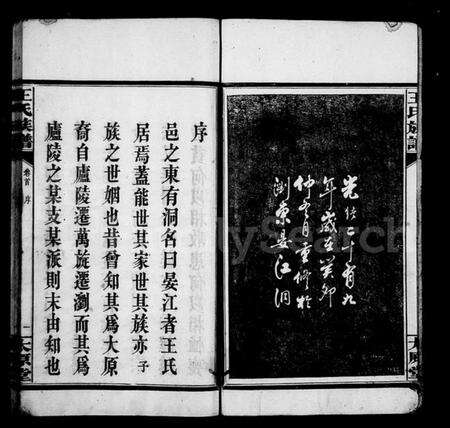 王氏族譜
太原堂
光緒二十有九
年歲在癸卯
仲冬月重修於
瀏東晏江洞
王氏族譜
卷首 序
一
太原堂
序
邑之東有洞名曰晏江者王氏
居焉蓋能世其家世其族亦予
族之世姻也昔曾知其為大原
裔自廬陵遷萬旋遷瀏而其為
廬陵之某支某派則末由知也